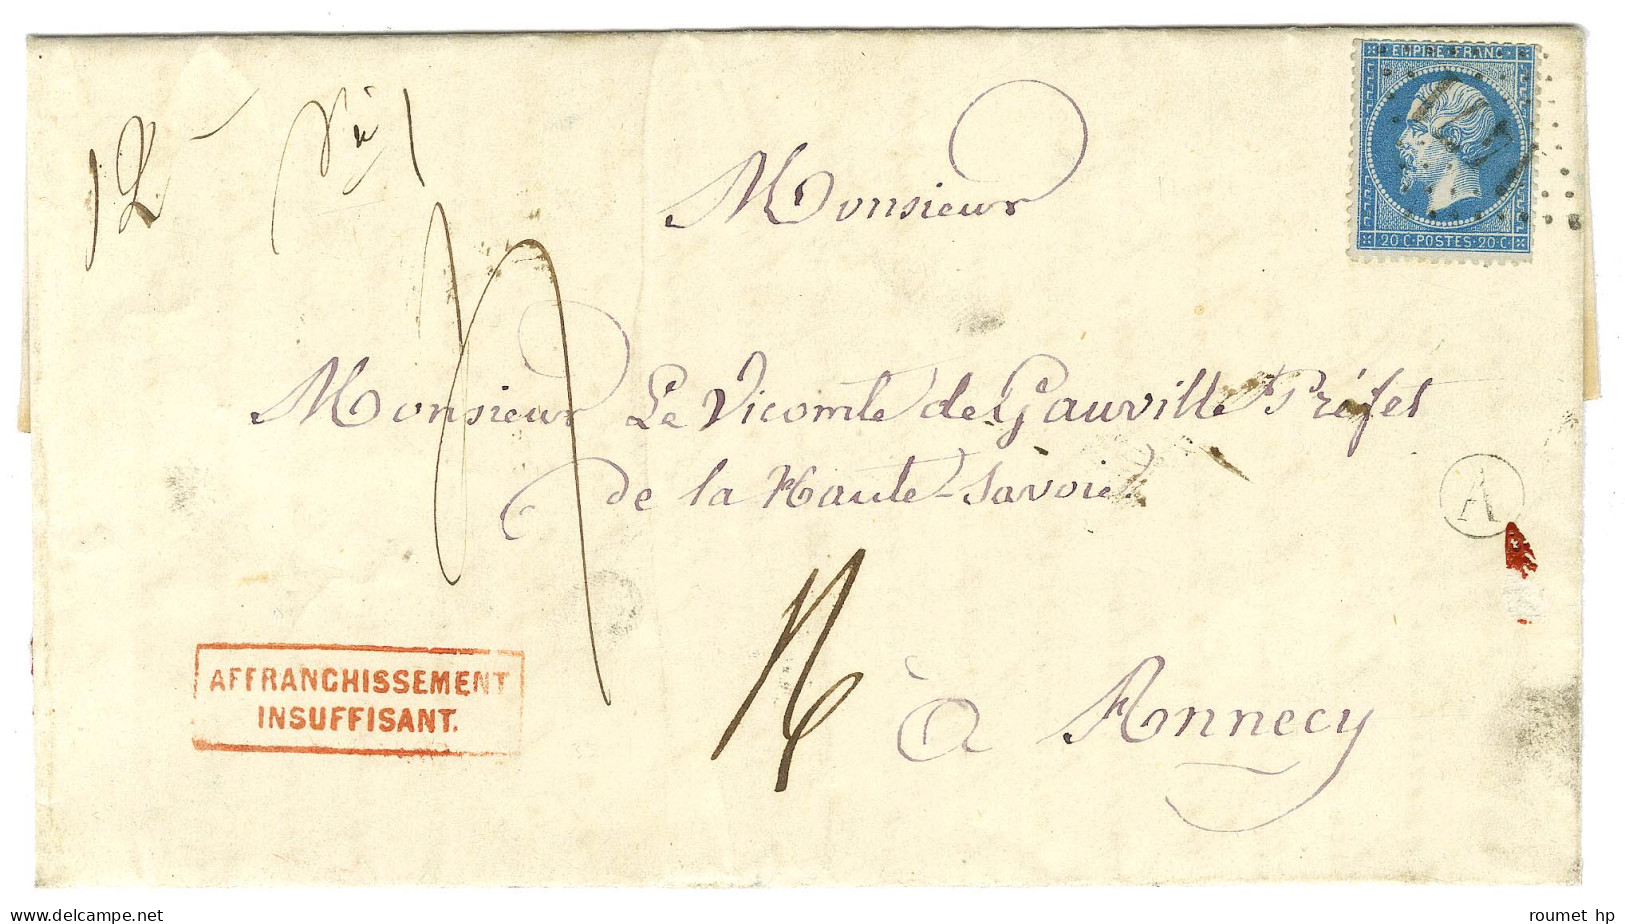 EMPIRE FRANC
20 C · POSTES · 20 C
Monsieur
Monsieur Le Vicomte de Gauville Préfet
de la Haute-Savoie
A
AFFRANCHISSEMENT
INSUFFISANT.
à Annecy
www.delcampe.net
roumet hp